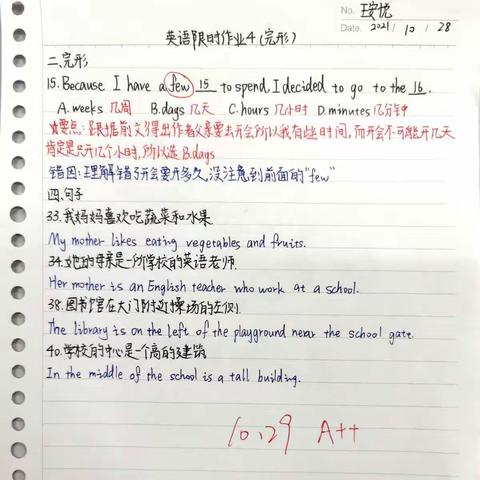 No. 王安悦
Date. 2021 / 10 / 28
英语限时作业4(完形)
二、完形
15. Because I have a few 15 to spend, I decided to go to the 16.
A. weeks 几周 B. days 几天 C. hours 几小时 D. minutes 几分钟
要点:跟据前文得出作者父亲要去开会所以我有些时间,而开会不可能开几天
肯定是只开几个小时,所以选 B.days
错因:理解错了开会要开多久,没注意到前面的"few"
四、句子
33. 我妈妈喜欢吃蔬菜和水果.
My mother likes eating vegetables and fruits.
34. 她的母亲是一所学校的英语老师.
Her mother is an English teacher who work at a school.
38. 图书馆在大门附近操场的左侧
The library is on the left of the playground near the school gate.
40. 学校的中心是一个高的建筑
In the middle of the school is a tall building.
10.29 A++